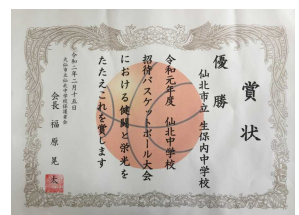 賞状
優勝
仙北市立 生保内中学校
令和元年度 仙北中学校
招待バスケットボール大会
における健闘と栄光を
たたえこれを賞します
令和二年二月十五日
会長 福原晃